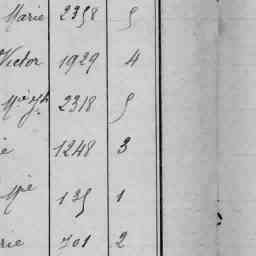 Marie 2358 5
Victor 1929 4
2318 5
e 1248 3
135 1
rie 701 2